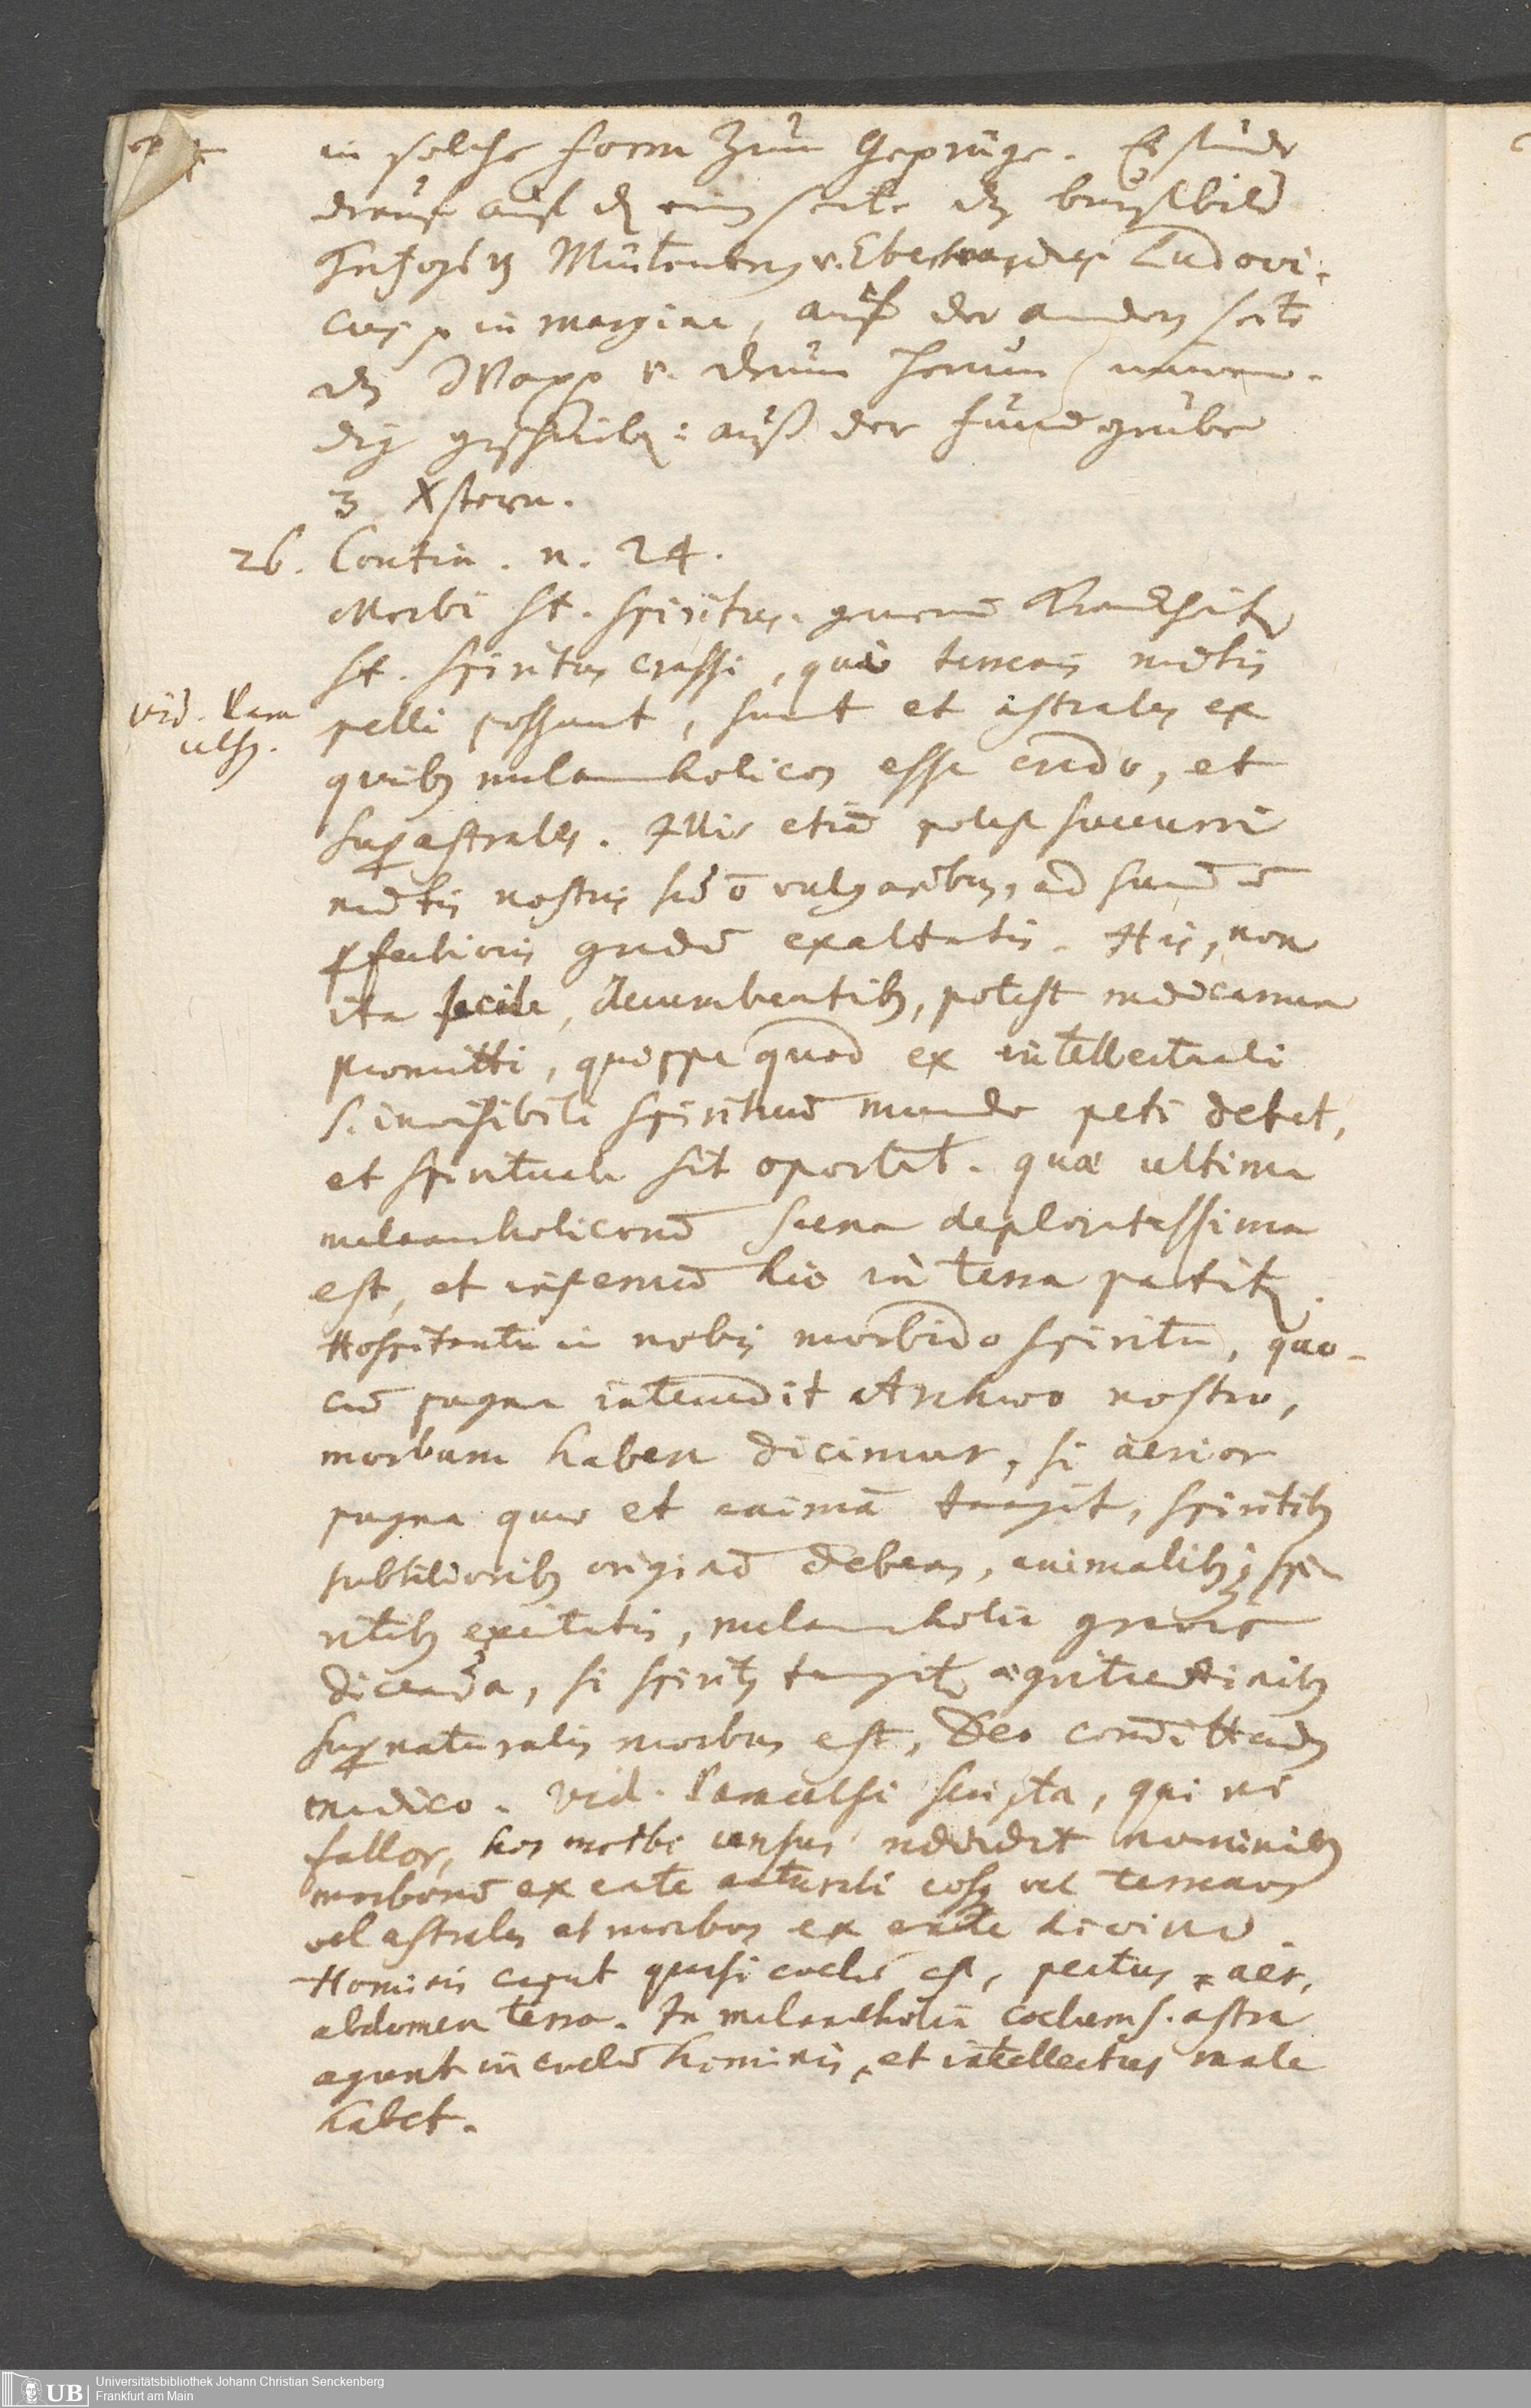 in solche form zum Gepräge. Es stunde
drauf auf der einen seite das brustbild
Herzogs von Würtenberg v. Eberhardus Ludovi-
cus p in margine, auf der andern seite
das Wapp v. drum herum
dig geschrieben: auß der fundgrube
3 Xstern.
26. Contin. n. 24.
Morbi st. spiritus. Kranckheiten
st. spiritus crassi, qui terreis mediis
vid. Para
celsg.
pelli possunt, sunt et astrales ex
quibg melancholicos esse credo, et
supastrales. Illis etiā potest succurri
nostris sed ō vulgaribus, ad summū
pfectionis gradū exaltatis. His, non
ita facile, decumbentibg, potest medicamen
promitti, quippe quod ex intellectuali
s. invisibili spirituū mundo peti debet,
et spirituale sit oportet. quae ultima
melancholicorū scena deploratissima
est, et infernū hic in terra patitr.
Hospitante in nobis morbido spiritu, quo-
cū pugna intercedit Archeo nostro,
morbum habere dicimur, si acrior
pugna quae et animā tangit, spiritibg
subtilioribg originē debens, animalibg spi
ritibg excitatis, melancholia gravis
dicenda, si spiritg tangitr aegritudinibg
supnaturalis morbus est, Deo committendg
medico. vid. Paracelsi scripta, qui ni
fallor, hos morbi census reddidit nominibg
morborū ex ente naturali eosq vel terreos
vel astrales et morbos ex ente divino.
Hominis caput quasi coelū est, pectus aer,
abdomen terra. In melancholia coelum s. astra
agunt in coelū hominis, et intellectus male
habet.
Universitätsbibliothek Johann Christian Senckenberg
Frankfurt am Main
UB